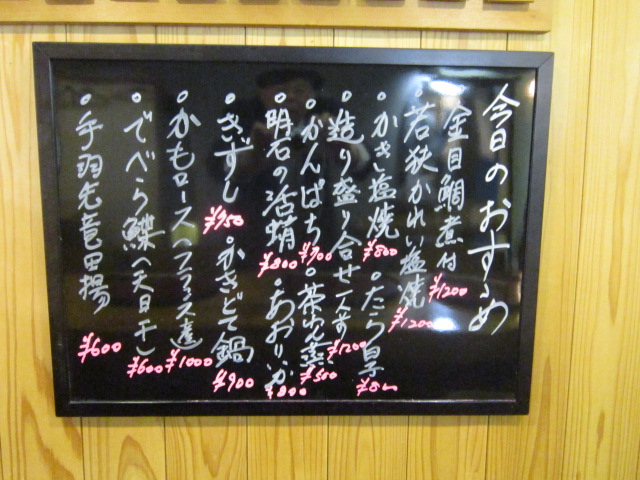 今日のおすすめ
金目鯛煮付 ¥1200
・若狭かれい塩焼 ¥1200
・かき塩焼 ¥800 ・たら白子
・造り盛り合せ一人す ¥1200
・かんぱち ¥700 ・茶碗蒸 ¥500
・明石の活蛸 ¥800 ・あおりいか ¥800
・きずし ¥950 ・かきどて鍋 ¥900
・かもロース(フランス産) ¥1000
・でべら鰈(天日干し) ¥600
・手羽先竜田揚 ¥600